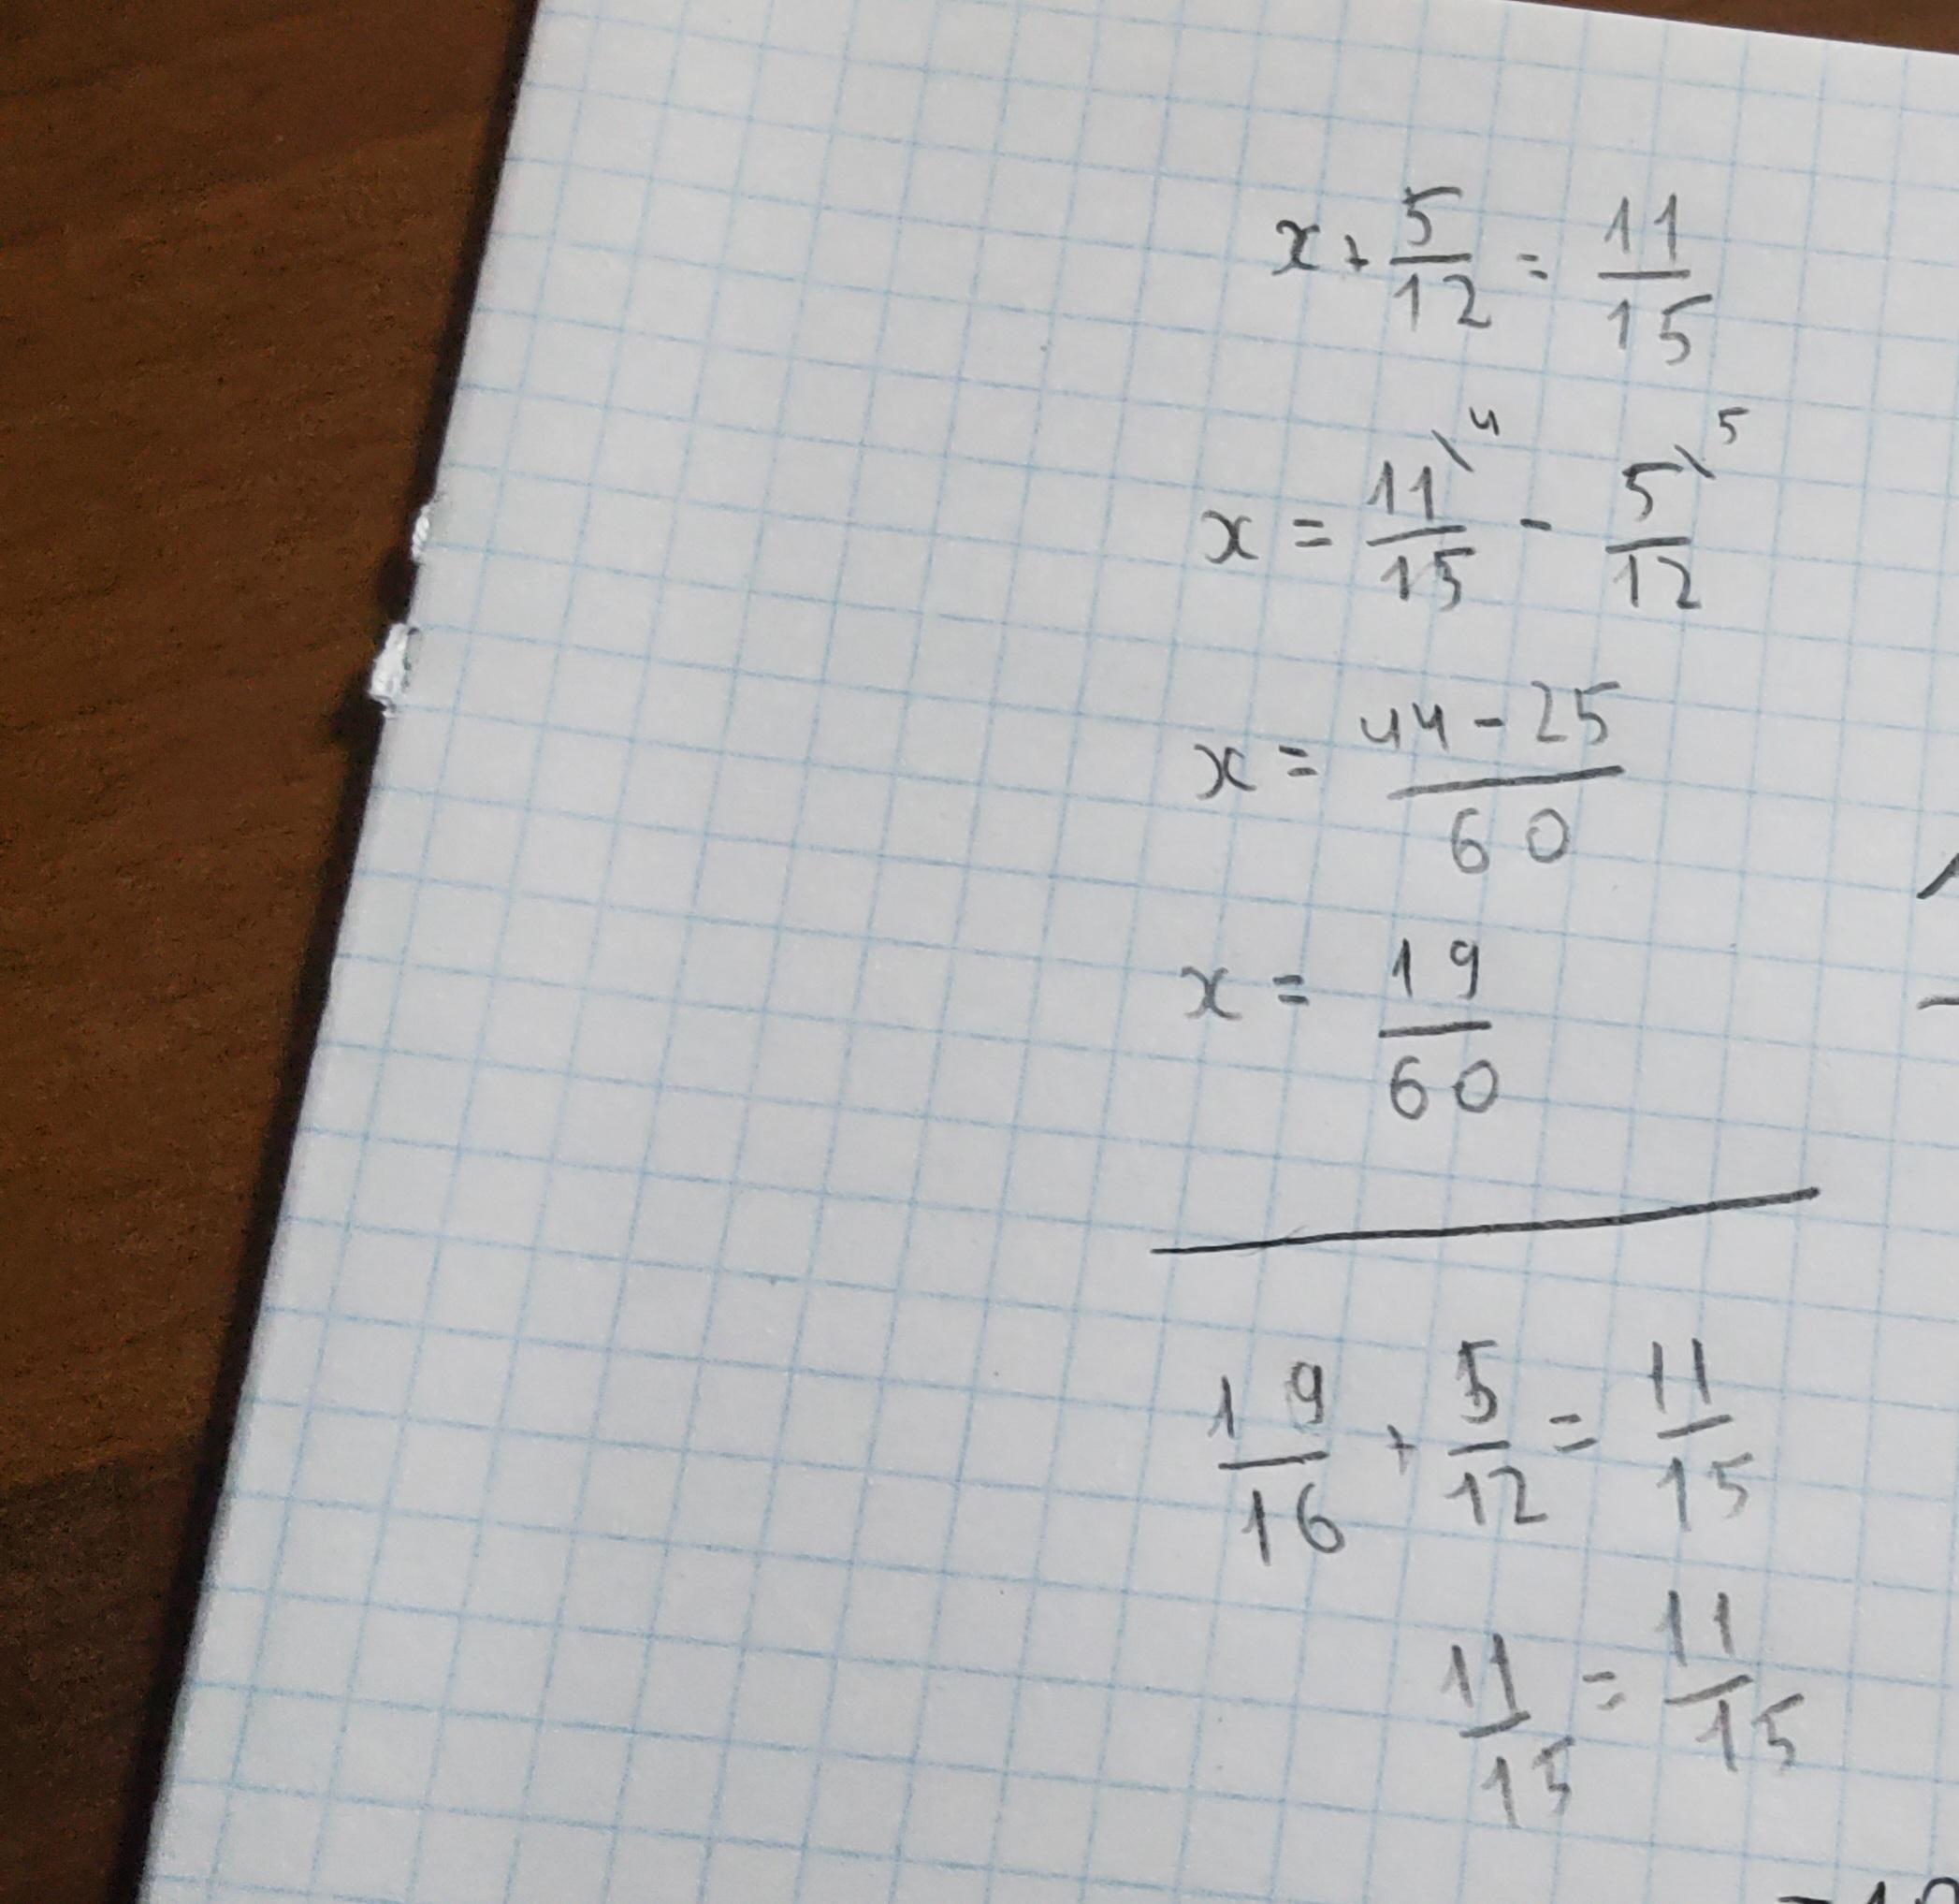 x + 5/12 = 11/15
x = 11\4/15 - 5\5/12
x = 44-25/60
x = 19/60
19/16 + 5/12 = 11/15
11/15 = 11/15